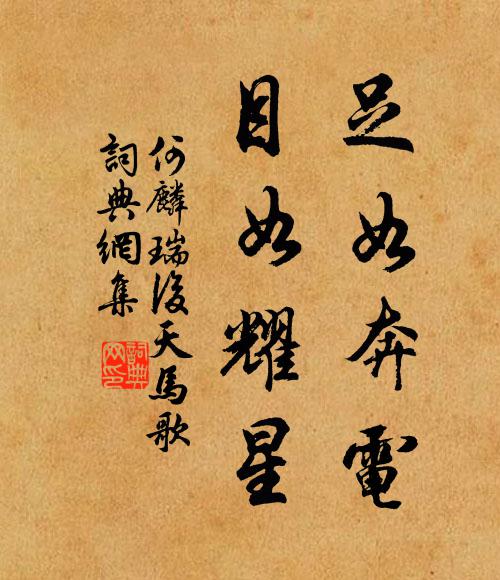 足如奔電
目如耀星
何麟瑞後天馬歌
詞典網集
詞典
网印